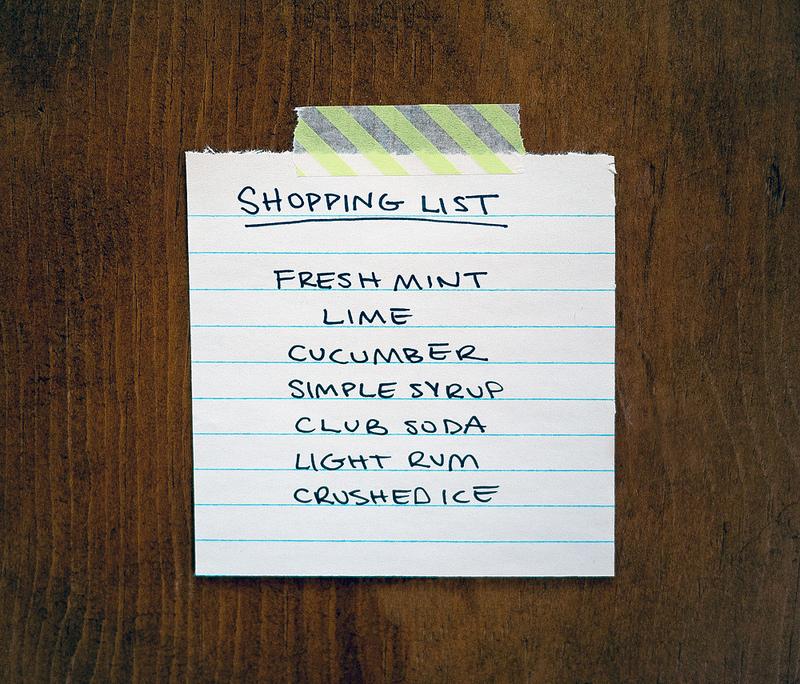 SHOPPING LIST
FRESH MINT
LIME
CUCUMBER
SIMPLE SYRUP
CLUB SODA
LIGHT RUM
CRUSHED ICE